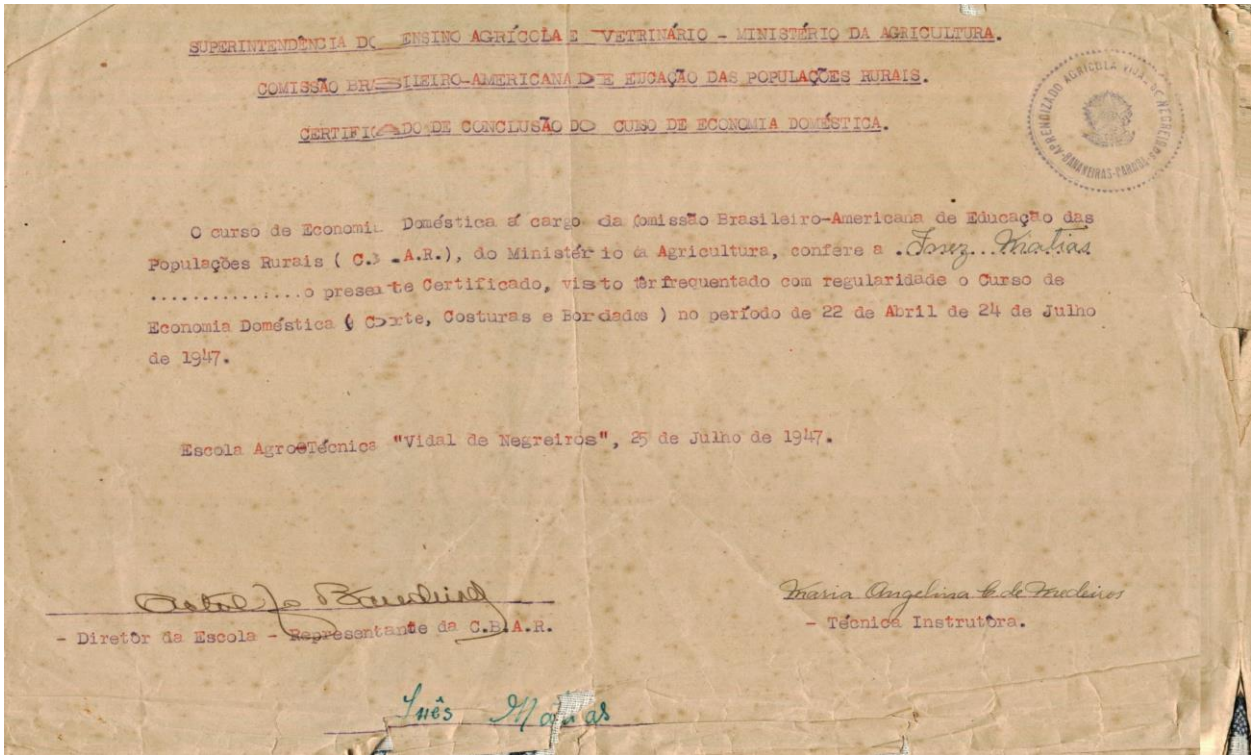 SUPERINTENDÊNCIA DO ENSINO AGRÍCOLA E VETRINÁRIO - MINISTÉRIO DA AGRICULTURA.
COMISSÃO BRASILEIRO-AMERICANA DE EDUCAÇÃO DAS POPULAÇÕES RURAIS.
CERTIFICADO DE CONCLUSÃO DO CURSO DE ECONOMIA DOMÉSTICA.
APRENDIZADO AGRICOLA VIDAL DE NEGREIROS
BANANEIRAS-PARAIBA
O curso de Economia Doméstica á cargo da Comissão Brasileiro-Americana de Educação das
Populações Rurais ( C.B.A.R.), do Ministério da Agricultura, confere a .Inez...Matias
...............o presente Certificado, visto têr frequentado com regularidade o Curso de
Economia Doméstica ( Corte, Costuras e Bordados ) no período de 22 de Abril de 24 de Julho
de 1947.
Escola AgroTécnica "Vidal de Negreiros", 25 de Julho de 1947.
Maria Angelina C. de Medeiros
- Diretôr da Escola - Representante da C.B.A.R.
- Técnica Instrutôra.
Inês Matias